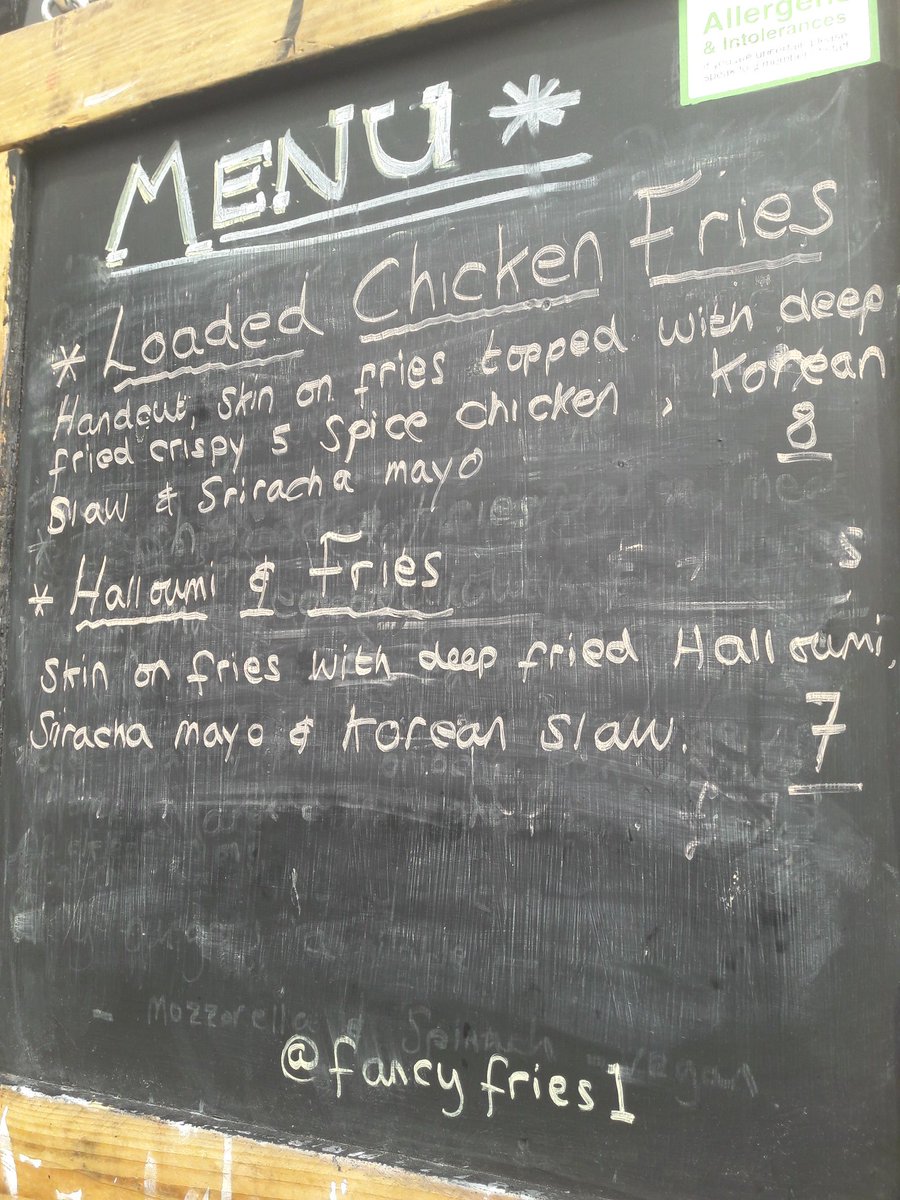 Allergens
& Intolerances
MENU *
* Loaded Chicken Fries
Handcut, skin on fries topped with deep
fried crispy 5 spice chicken, Korean
Slaw & Sriracha mayo 8
* Halloumi & Fries
Skin on fries with deep fried Halloumi,
Sriracha mayo & Korean Slaw. 7
- Mozzorella & Spinach - Vegan
@fancyfries1